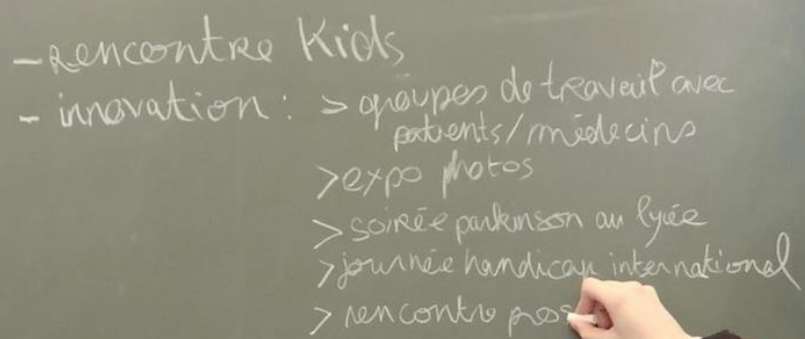 - rencontre Kids
- innovation : > groupes de travail avec
patients/médecins
> expo photos
> soirée parkinson au lycée
> journée handicap international
> rencontre